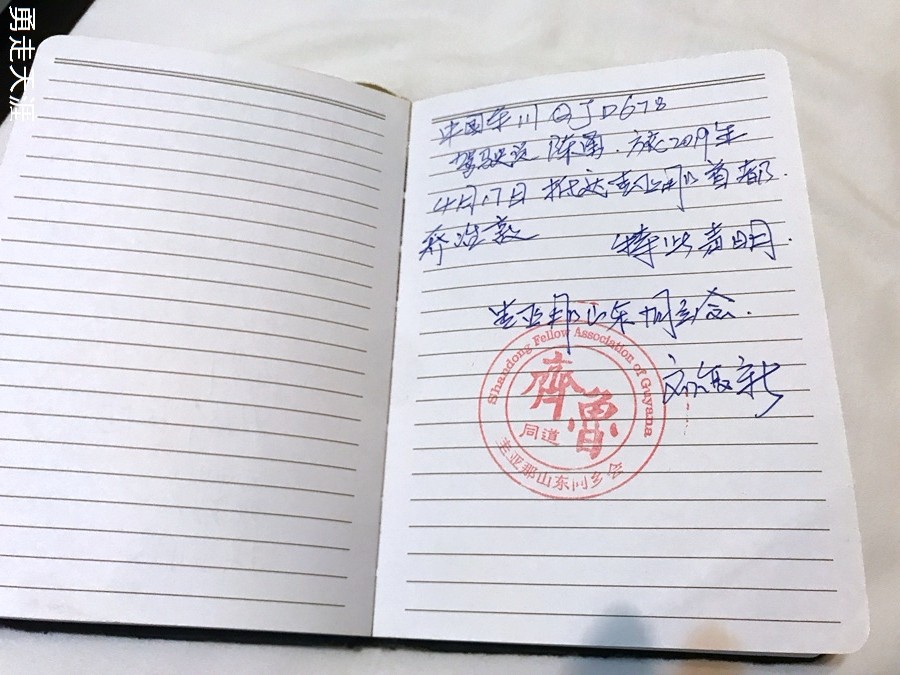 勇走天涯
中国车川QJD678
驾驶员 陈勇. 於2019年
4月17日 抵达圭亚那首都.
乔治敦 特此声明.
圭亚那山东同乡会.
Shandong Fellow Association of Guyana
齊魯
同道
圭亚那山东同乡会